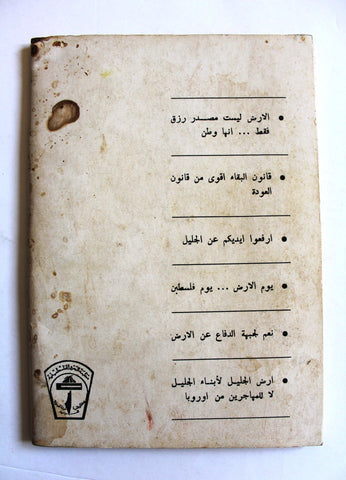 • الارض ليست مصدر رزق
فقط ... انها وطن
• قانون البقاء اقوى من قانون
العودة
• ارفعوا ايديكم عن الجليل
• يوم الارض ... يوم فلسطين
• نعم لجبهة الدفاع عن الارض
• ارض الجليل لأبناء الجليل
لا للمهاجرين من اوروبا